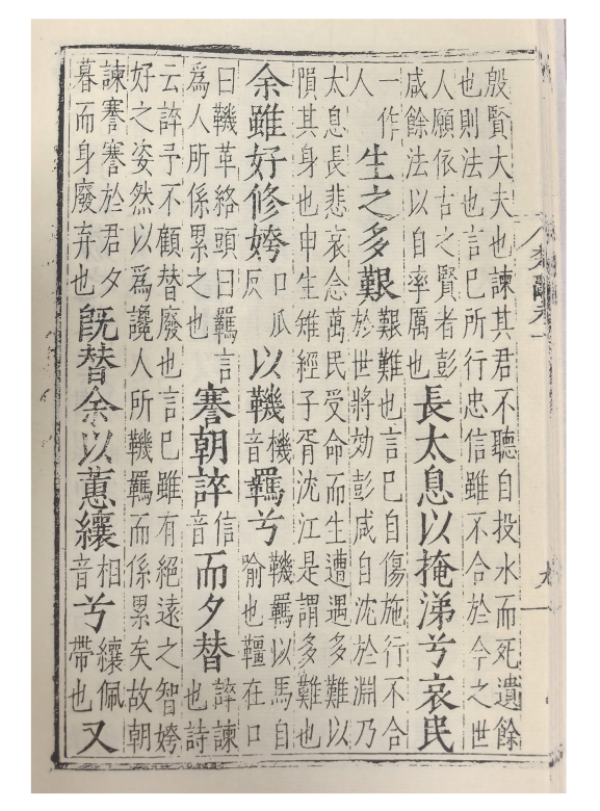 殷賢大夫也諫其君不聽自投水而死遺餘
也則法也言已所行忠信雖不合於今之世
人願依古之賢者彭咸餘法以自率厲也長太息以掩涕兮哀民
一作人生之多艱艱難也言已自傷施行不合於世將効彭咸自沈於淵乃
太息長悲哀念萬民受命而生遭遇多難以
隕其身也申生雉經子胥沈江是謂多難也
余雖好修姱口瓜反以鞿機音羈兮鞿羈以馬自喻也韁在口
曰鞿革絡頭曰羈言為人所係累之也謇朝誶信音而夕替誶諫也詩
云誶予不顧替廢也言已雖有絕遠之智姱
好之姿然以為讒人所鞿羈而係累矣故朝
諫謇謇於君夕暮而身廢弃也既替余以蕙纕相音兮纕佩帶也又